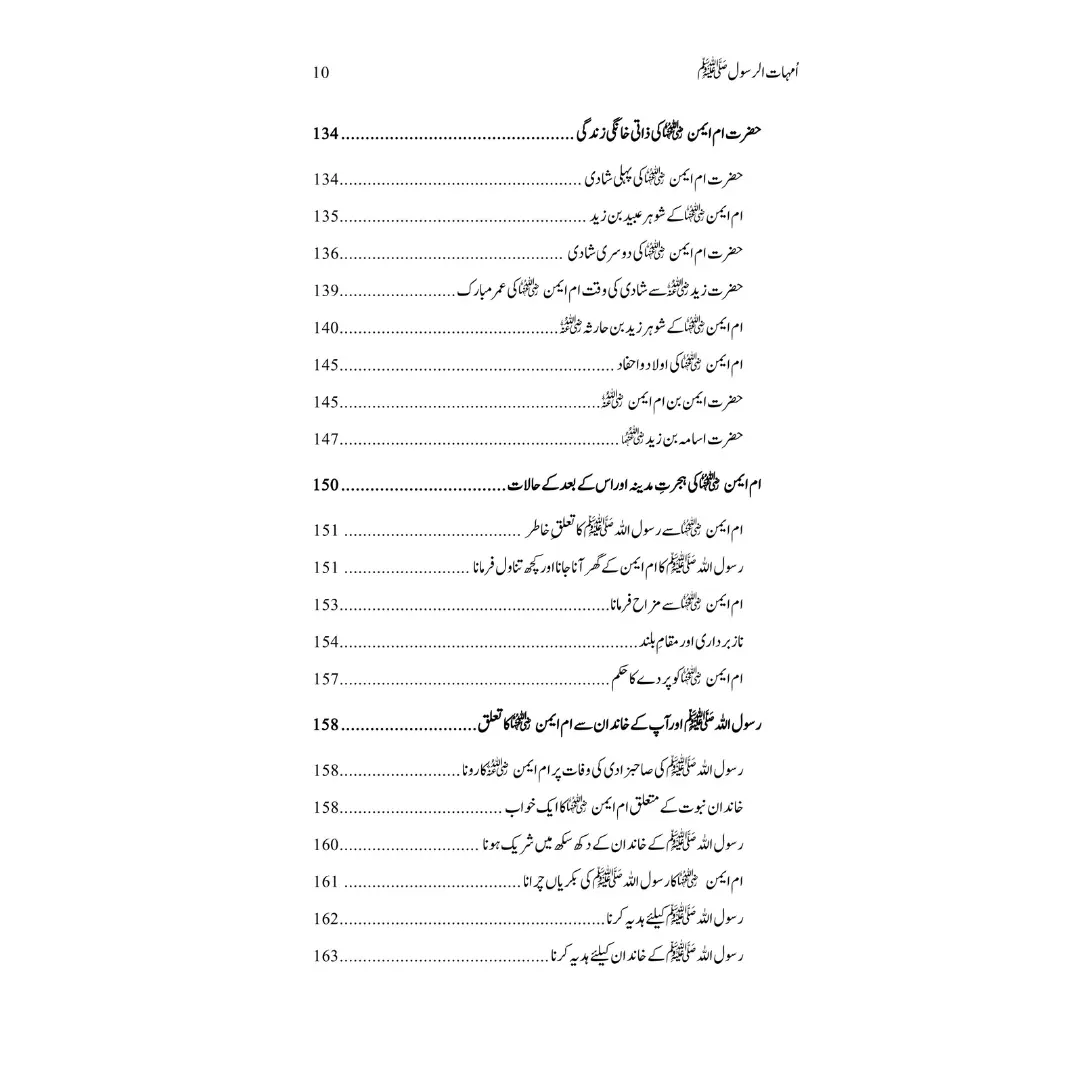 اُمہات الرسول ﷺ 10
حضرت ام ایمن رضی اللہ عنہا کی ذاتی خانگی زندگی ................................................ 134
حضرت ام ایمن رضی اللہ عنہا کی پہلی شادی ....................................................134
ام ایمن رضی اللہ عنہا کے شوہر عبید بن زید .....................................................135
حضرت ام ایمن رضی اللہ عنہا کی دوسری شادی ................................................136
حضرت زید رضی اللہ عنہ سے شادی کی وقت ام ایمن رضی اللہ عنہا کی عمر مبارک.........................139
ام ایمن رضی اللہ عنہا کے شوہر زید بن حارثہ رضی اللہ عنہ...............................................140
ام ایمن رضی اللہ عنہا کی اولاد واحفاد ...........................................................145
حضرت ایمن بن ام ایمن رضی اللہ عنہ........................................................145
حضرت اسامہ بن زید رضی اللہ عنہما ............................................................147
ام ایمن رضی اللہ عنہا کی ہجرتِ مدینہ اور اس کے بعد کے حالات.................................. 150
ام ایمن رضی اللہ عنہا سے رسول اللہ ﷺ کا تعلقِ خاطر ...................................... 151
رسول اللہ ﷺ کا ام ایمن کے گھر آنا جانا اور کچھ تناول فرمانا ........................... 151
ام ایمن رضی اللہ عنہا سے مزاح فرمانا..........................................................153
ناز برداری اور مقامِ بلند................................................................154
ام ایمن رضی اللہ عنہا کو پردے کا حکم..........................................................157
رسول اللہ ﷺ اور آپ کے خاندان سے ام ایمن رضی اللہ عنہا کا تعلق............................ 158
رسول اللہ ﷺ کی صاحبزادی کی وفات پر ام ایمن رضی اللہ عنہ کا رونا ..........................158
خاندان نبوت کے متعلق ام ایمن رضی اللہ عنہا کا ایک خواب ...................................158
رسول اللہ ﷺ کے خاندان کے دکھ سکھ میں شریک ہونا ..............................160
ام ایمن رضی اللہ عنہا کا رسول اللہ ﷺ کی بکریاں چرانا ...................................... 161
رسول اللہ ﷺ کیلئے ہدیہ کرنا.........................................................162
رسول اللہ ﷺ کے خاندان کیلئے ہدیہ کرنا.............................................163